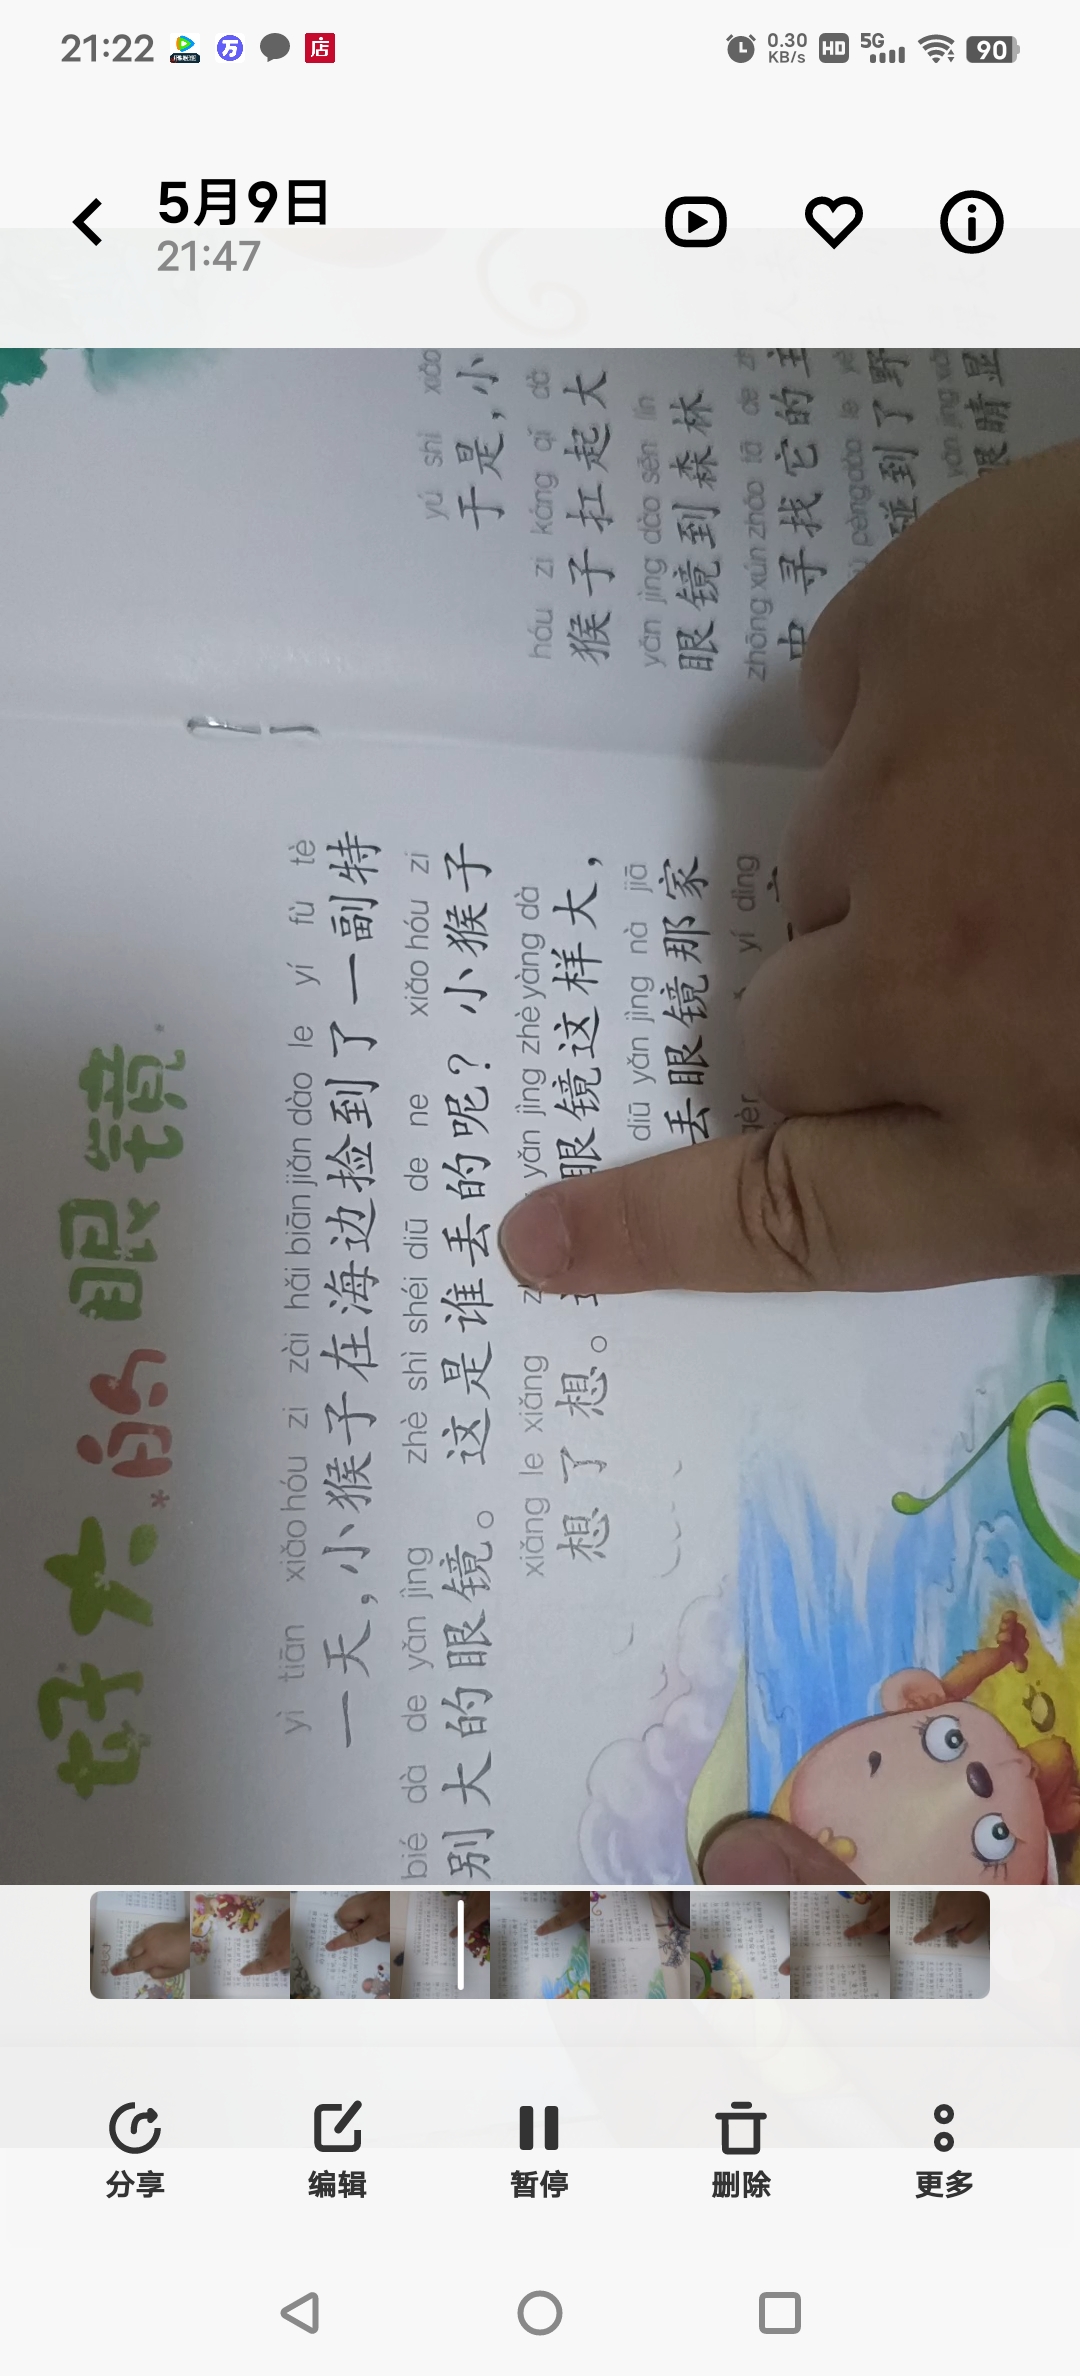 21:22
万
店
0.30 KB/s
HD
5G
90
5月9日
21:47
好大的眼镜
yì tiān xiǎo hóu zi zài hǎi biān jiǎn dào le yí fù tè
一天，小猴子在海边捡到了一副特
bié dà de yǎn jìng zhè shì shéi diū de ne xiǎo hóu zi
别大的眼镜。这是谁丢的呢？小猴子
xiǎng le xiǎng yǎn jìng zhè yàng dà
想了想。眼镜这样大，
diū yǎn jìng nà jiā
丢眼镜那家
yí dìng
yú shì xiǎo
于是，小
hóu zi káng qǐ dà
猴子扛起大
yǎn jìng dào sēn lín
眼镜到森林
zhōng xún zhǎo tā de
中寻找它的主
pèng dào le yě
碰到了野
yǎn jīng xiǎn
眼睛显
分享
编辑
暂停
删除
更多